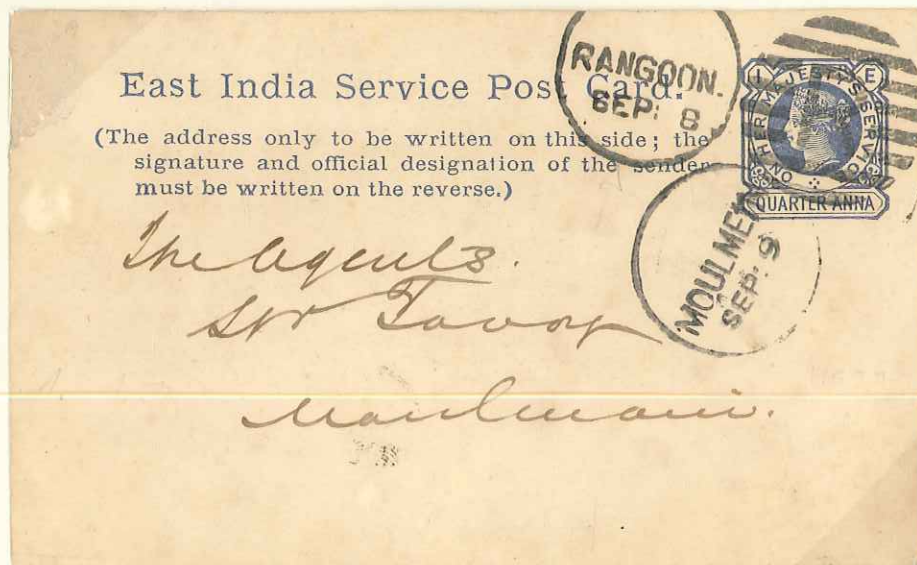 East India Service Post Card.
(The address only to be written on this side; the
signature and official designation of the sender
must be written on the reverse.)
RANGOON.
SEP: 8
I E
ON HER MAJESTY'S SERVICE
QUARTER ANNA
MOULMEIN
SEP: 9
The Agents.
Str Tavoy
Maulmain.